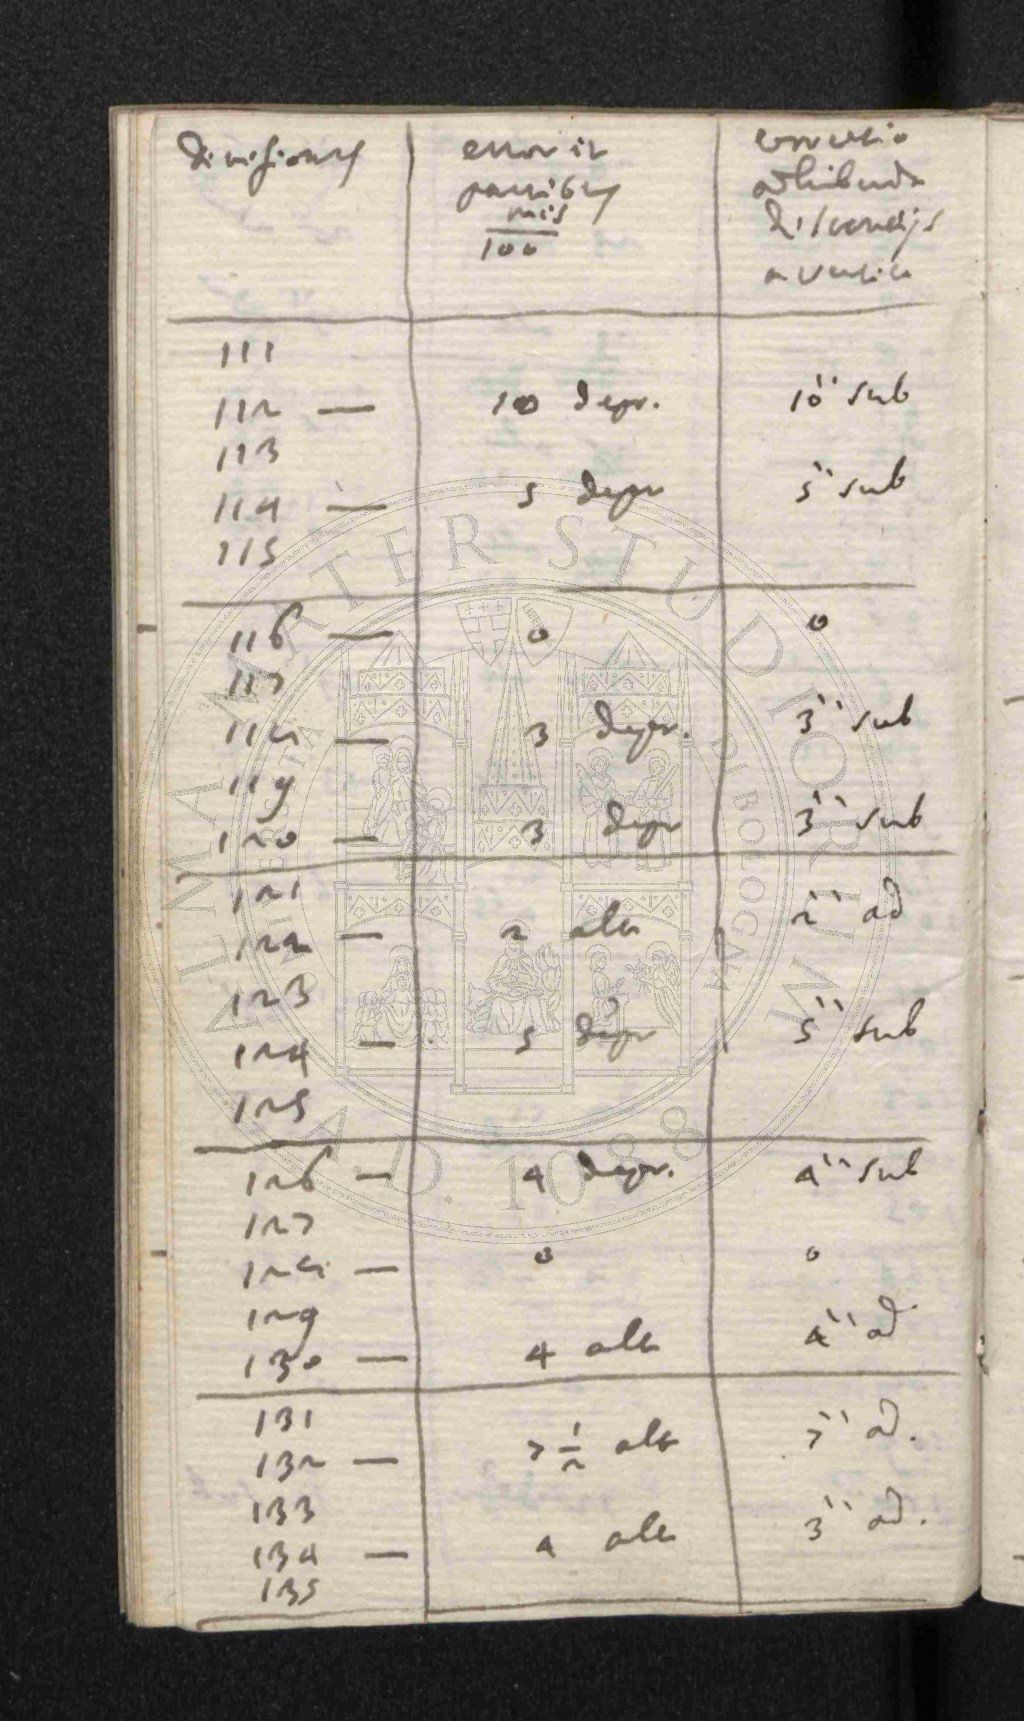 divisiones error in correctio
partibus adhibenda
mis distantijs
100 a vertice
111
112 — 10 depr. 10'' sub
113
114 — 5 depr 5'' sub
115
116 — 0 0
117
118 — 3 depr. 3'' sub
119
120 — 3 depr 3'' sub
121
122 — 2 alt 2'' ad
123
124 — 5 depr 5'' sub
125
126 — 4 depr. 4'' sub
127
128 — 0 0
129
130 — 4 alt 4'' ad
131
132 — 7 1/2 alt 7'' ad.
133
134 — 4 alt 3'' ad.
135
ALMA MATER STUDIORUM
A.D. 1088